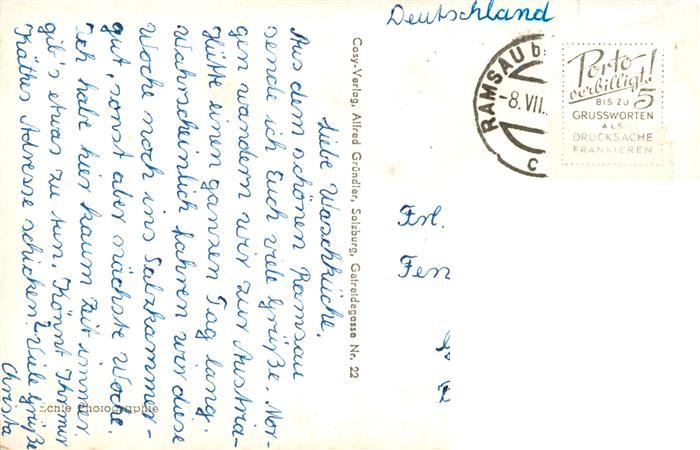 Deutschland
RAMSAU b.
-8. VII.
C
Porto
verbilligt!
BIS ZU 5
GRUSSWORTEN
ALS
DRUCKSACHE
FRANKIEREN
Frl.
Fen
Cosy-Verlag, Alfred Gründler, Salzburg, Getreidegasse Nr. 22
Liebe Waschküche,
Aus dem schönen Ramsau
sende ich Euch viele Grüße. Mor-
gen wandern wir zur Austria-
Hütte einen ganzen Tag lang.
Wahrscheinlich fahren wir diese
Woche noch ins Salzkammer-
gut, sonst aber nächste Woche.
Ich habe hier kaum Zeit immer
gib's etwas zu tun. Könnt Ihr mir
Käthes Adresse schicken? Viele Grüße
Christa
Echte Photographie